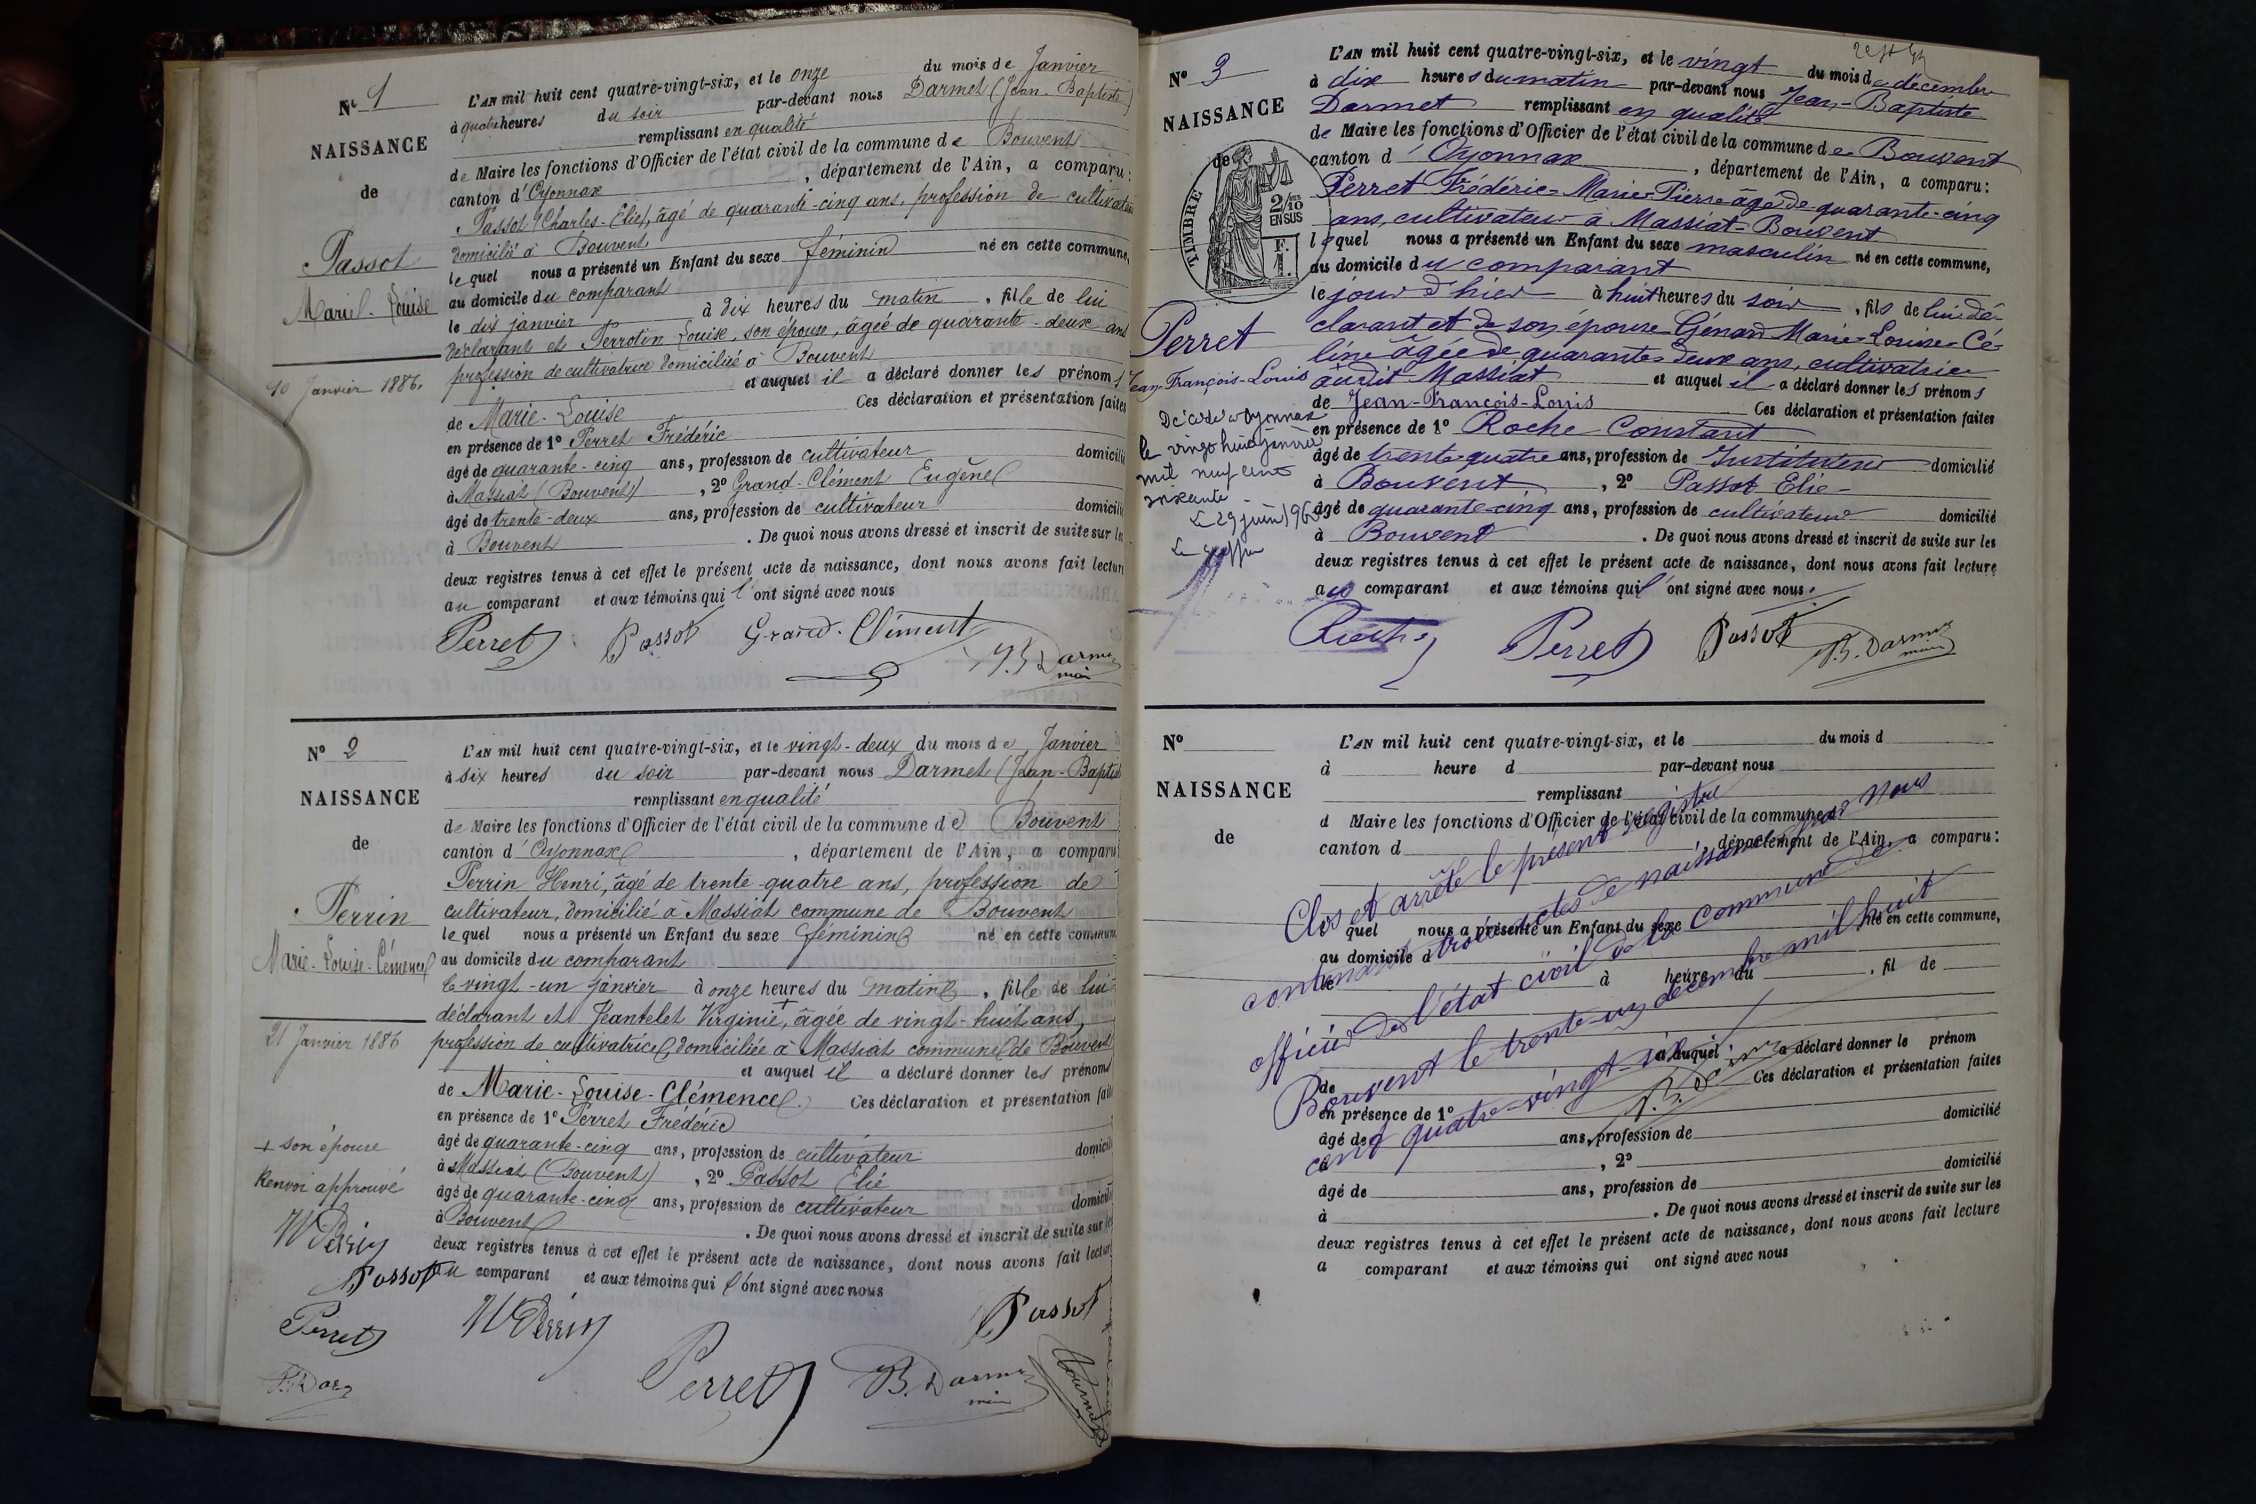 N° 1
NAISSANCE
de
Passot
Marie-Louise
10 Janvier 1886.
L'AN mil huit cent quatre-vingt-six, et le onze du mois de Janvier
à quatre heures du soir par-devant nous Darmet (Jean-Baptiste)
remplissant en qualité
de Maire les fonctions d'Officier de l'état civil de la commune de Bouvent
canton d'Oyonnax, département de l'Ain, a comparu:
Passot (Charles-Elie), âgé de quarante-cinq ans, profession de cultivateur
domicilié à Bouvent
lequel nous a présenté un Enfant du sexe féminin né en cette commune,
au domicile du comparant
le dix janvier à dix heures du matin, fille de lui
déclarant et Perrotin Louise, son épouse, âgée de quarante-deux ans
profession de cultivatrice domiciliée à Bouvent
et auquel il a déclaré donner les prénoms
de Marie-Louise Ces déclaration et présentation faites
en présence de 1° Perret Frédéric
âgé de quarante-cinq ans, profession de cultivateur domicilié
à Massiat (Bouvent), 2° Grand-Clément Eugène
âgé de trente-deux ans, profession de cultivateur domicilié
à Bouvent. De quoi nous avons dressé et inscrit de suite sur les
deux registres tenus à cet effet le présent acte de naissance, dont nous avons fait lecture
au comparant et aux témoins qui l'ont signé avec nous
Perret Passot Grand-Clément
J.B. Darmet
maire
N° 2
NAISSANCE
de
Perrin
Marie-Louise-Clémence
21 Janvier 1886
+ son épouse
Renvoi approuvé
H Perrin
Passot
Perret
L'AN mil huit cent quatre-vingt-six, et le vingt-deux du mois de Janvier
à six heures du soir par-devant nous Darmet (Jean-Baptiste
remplissant en qualité
de Maire les fonctions d'Officier de l'état civil de la commune de Bouvent
canton d'Oyonnax, département de l'Ain, a comparu
Perrin Henri, âgé de trente-quatre ans, profession de
cultivateur, domicilié à Massiat commune de Bouvent
lequel nous a présenté un Enfant du sexe féminin né en cette commune
au domicile du comparant
le vingt-un janvier à onze heures du matin, fille de lui
déclarant et + Jeantelet Virginie, âgée de vingt-huit ans,
profession de cultivatrice, domiciliée à Massiat commune de Bouvent
et auquel il a déclaré donner les prénoms
de Marie-Louise-Clémence. Ces déclaration et présentation faites
en présence de 1° Perret Frédéric
âgé de quarante-cinq ans, profession de cultivateur domicilié
à Massiat (Bouvent), 2° Passot Elie
âgé de quarante-cinq ans, profession de cultivateur domicilié
à Bouvent. De quoi nous avons dressé et inscrit de suite sur les
deux registres tenus à cet effet le présent acte de naissance, dont nous avons fait lecture
au comparant et aux témoins qui l'ont signé avec nous
H Perrin Passot
Perret B. Darmet
maire
N° 3
NAISSANCE
de
TIMBRE
2/10
EN SUS
Perret
Jean-François-Louis
Décédé à Oyonnax
le vingt huit janvier
mil neuf cent
soixante
Le 29 juin 1960
Le greffier
L'AN mil huit cent quatre-vingt-six, et le vingt du mois de décembre
à dix heures du matin par-devant nous Jean-Baptiste
Darmet remplissant en qualité
de Maire les fonctions d'Officier de l'état civil de la commune de Bouvent
canton d'Oyonnax, département de l'Ain, a comparu:
Perret Frédéric-Marie-Pierre âgé de quarante-cinq
ans, cultivateur à Massiat-Bouvent
lequel nous a présenté un Enfant du sexe masculin né en cette commune,
au domicile du comparant
le jour d'hier à huit heures du soir, fils de lui dé-
clarant et de son épouse Génard Marie-Louise-Cé-
line âgée de quarante-deux ans, cultivatrice
au dit Massiat et auquel il a déclaré donner les prénoms
de Jean-François-Louis Ces déclaration et présentation faites
en présence de 1° Roche Constant
âgé de trente-quatre ans, profession de Instituteur domicilié
à Bouvent, 2° Passot Elie
âgé de quarante-cinq ans, profession de cultivateur domicilié
à Bouvent. De quoi nous avons dressé et inscrit de suite sur les
deux registres tenus à cet effet le présent acte de naissance, dont nous avons fait lecture
au comparant et aux témoins qui l'ont signé avec nous.
Roche Perret Passot B. Darmet
maire
N°
NAISSANCE
de
L'AN mil huit cent quatre-vingt-six, et le du mois d
à heure d par-devant nous
remplissant
d Maire les fonctions d'Officier de l'état civil de la commune d
canton d , département de l'Ain, a comparu:
quel nous a présenté un Enfant du sexe né en cette commune,
au domicile d
le à heure du , fil de
et auquel a déclaré donner le prénom
de Ces déclaration et présentation faites
en présence de 1°
âgé de ans, profession de domicilié
à , 2°
âgé de ans, profession de domicilié
à . De quoi nous avons dressé et inscrit de suite sur les
deux registres tenus à cet effet le présent acte de naissance, dont nous avons fait lecture
a comparant et aux témoins qui ont signé avec nous
Clos et arrêté le présent registre
contenant trois actes de naissance par nous
officier de l'état civil de la commune de
Bouvent le trente-un décembre mil huit
cent quatre-vingt-six